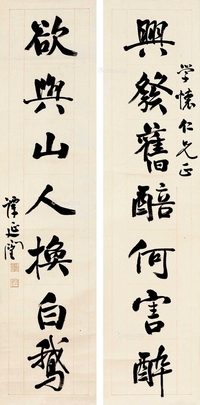 學懷仁兄正
興發舊醅何害醉
欲與山人換白鵝
譚延闓